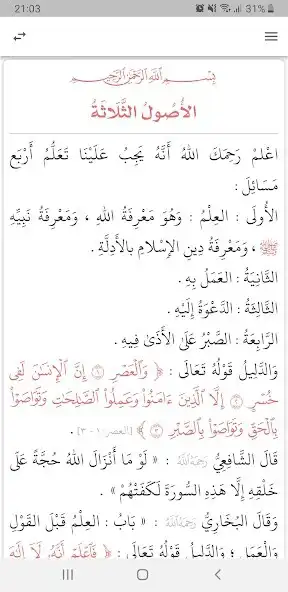 21:03
31%
بِسْمِ اللَّهِ الرَّحْمَٰنِ الرَّحِيمِ
الأُصُولُ الثَّلَاثَةُ
اعْلَمْ رَحِمَكَ اللهُ أَنَّهُ يَجِبُ عَلَيْنَا تَعَلُّمُ أَرْبَعِ
مَسَائِلَ :
الأُولَى : العِلْمُ : وَهُوَ مَعْرِفَةُ اللهِ ، وَمَعْرِفَةُ نَبِيِّهِ
ﷺ ، وَمَعْرِفَةُ دِينِ الإِسْلامِ بالأَدِلَّةِ .
الثَّانِيَةُ : العَمَلُ بِهِ .
الثَّالِثَةُ : الدَّعْوَةُ إِلَيْهِ .
الرَّابِعَةُ : الصَّبْرُ عَلَى الأَذَىٰ فِيهِ .
وَالدَّلِيلُ قَوْلُهُ تَعَالَى : ﴿ وَٱلْعَصْرِ ۝١ إِنَّ ٱلْإِنسَٰنَ لَفِى
خُسْرٍ ۝٢ إِلَّا ٱلَّذِينَ ءَامَنُوا۟ وَعَمِلُوا۟ ٱلصَّٰلِحَٰتِ وَتَوَاصَوْا۟
بِٱلْحَقِّ وَتَوَاصَوْا۟ بِٱلصَّبْرِ ۝٣ ﴾ [العصر: ١ - ٣] .
قَالَ الشَّافِعِيُّ رَحِمَهُ اللَّهُ : « لَوْ مَا أَنْزَلَ اللهُ حُجَّةً عَلَى
خَلْقِهِ إِلَّا هَذِهِ السُّورَةَ لَكَفَتْهُمْ » .
وَقَالَ البُخَارِيُّ رَحِمَهُ اللَّهُ : « بَابُ : العِلْمُ قَبْلَ القَوْلِ
وَالْعَمَلِ ؛ وَالدَّلِيلُ قَوْلُهُ تَعَالَى : ﴿ فَٱعْلَمْ أَنَّهُۥ لَآ إِلَٰهَ